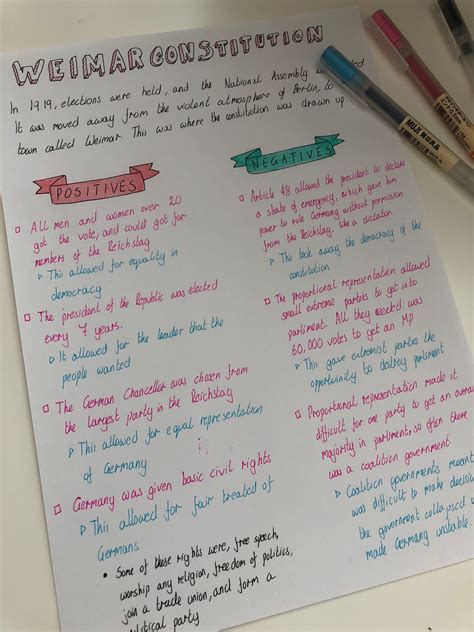 WEIMAR CONSTITUTION
In 1919, elections were held, and the National Assembly
It was moved away from the violent atmosphere of Berlin, to
town called Weimar. This was where the constitution was drawn up
POSITIVES
All men and women over 20
got the vote, and could got for
members of the Reichstag
This allowed for equality in
democracy
The president of the Republic was elected
every 7 years.
It allowed for the leader that the
people wanted
The German Chancellor was chosen from
the largest party in the Reichstag
This allowed for equal representation
of Germany
Germany was given basic civil rights
This allowed for fair treated of
Germans
• Some of those rights were, free speech,
worship any religion, freedom of politics,
join a trade union, and form a
political party
NEGATIVES
Article 48 allowed the president to declare
a state of emergency, which gave him
power to rule Germany without permission
from the Reichstag. Like a dictator
This took away the democracy of the
constitution
The proportional representation allowed
small extreme parties to get into
parliment. All they needed was
60,000 votes to get an MP
This gave extremist parties the
opportunity to destroy parliment
Proportional representation made it
difficult for one party to get an overall
majority in parliment, so often there
was a coalition government
Coalition governments meant
was difficult to make decisions
the government collapsed
made Germany unstable.
MUJI